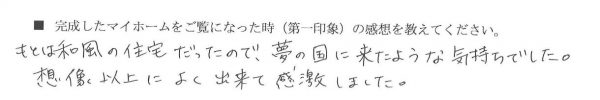 ■ 完成したマイホームをご覧になった時（第一印象）の感想を教えてください。
もとは和風の住宅だったので、夢の国に来たような気持ちでした。
想像以上によく出来て感激しました。